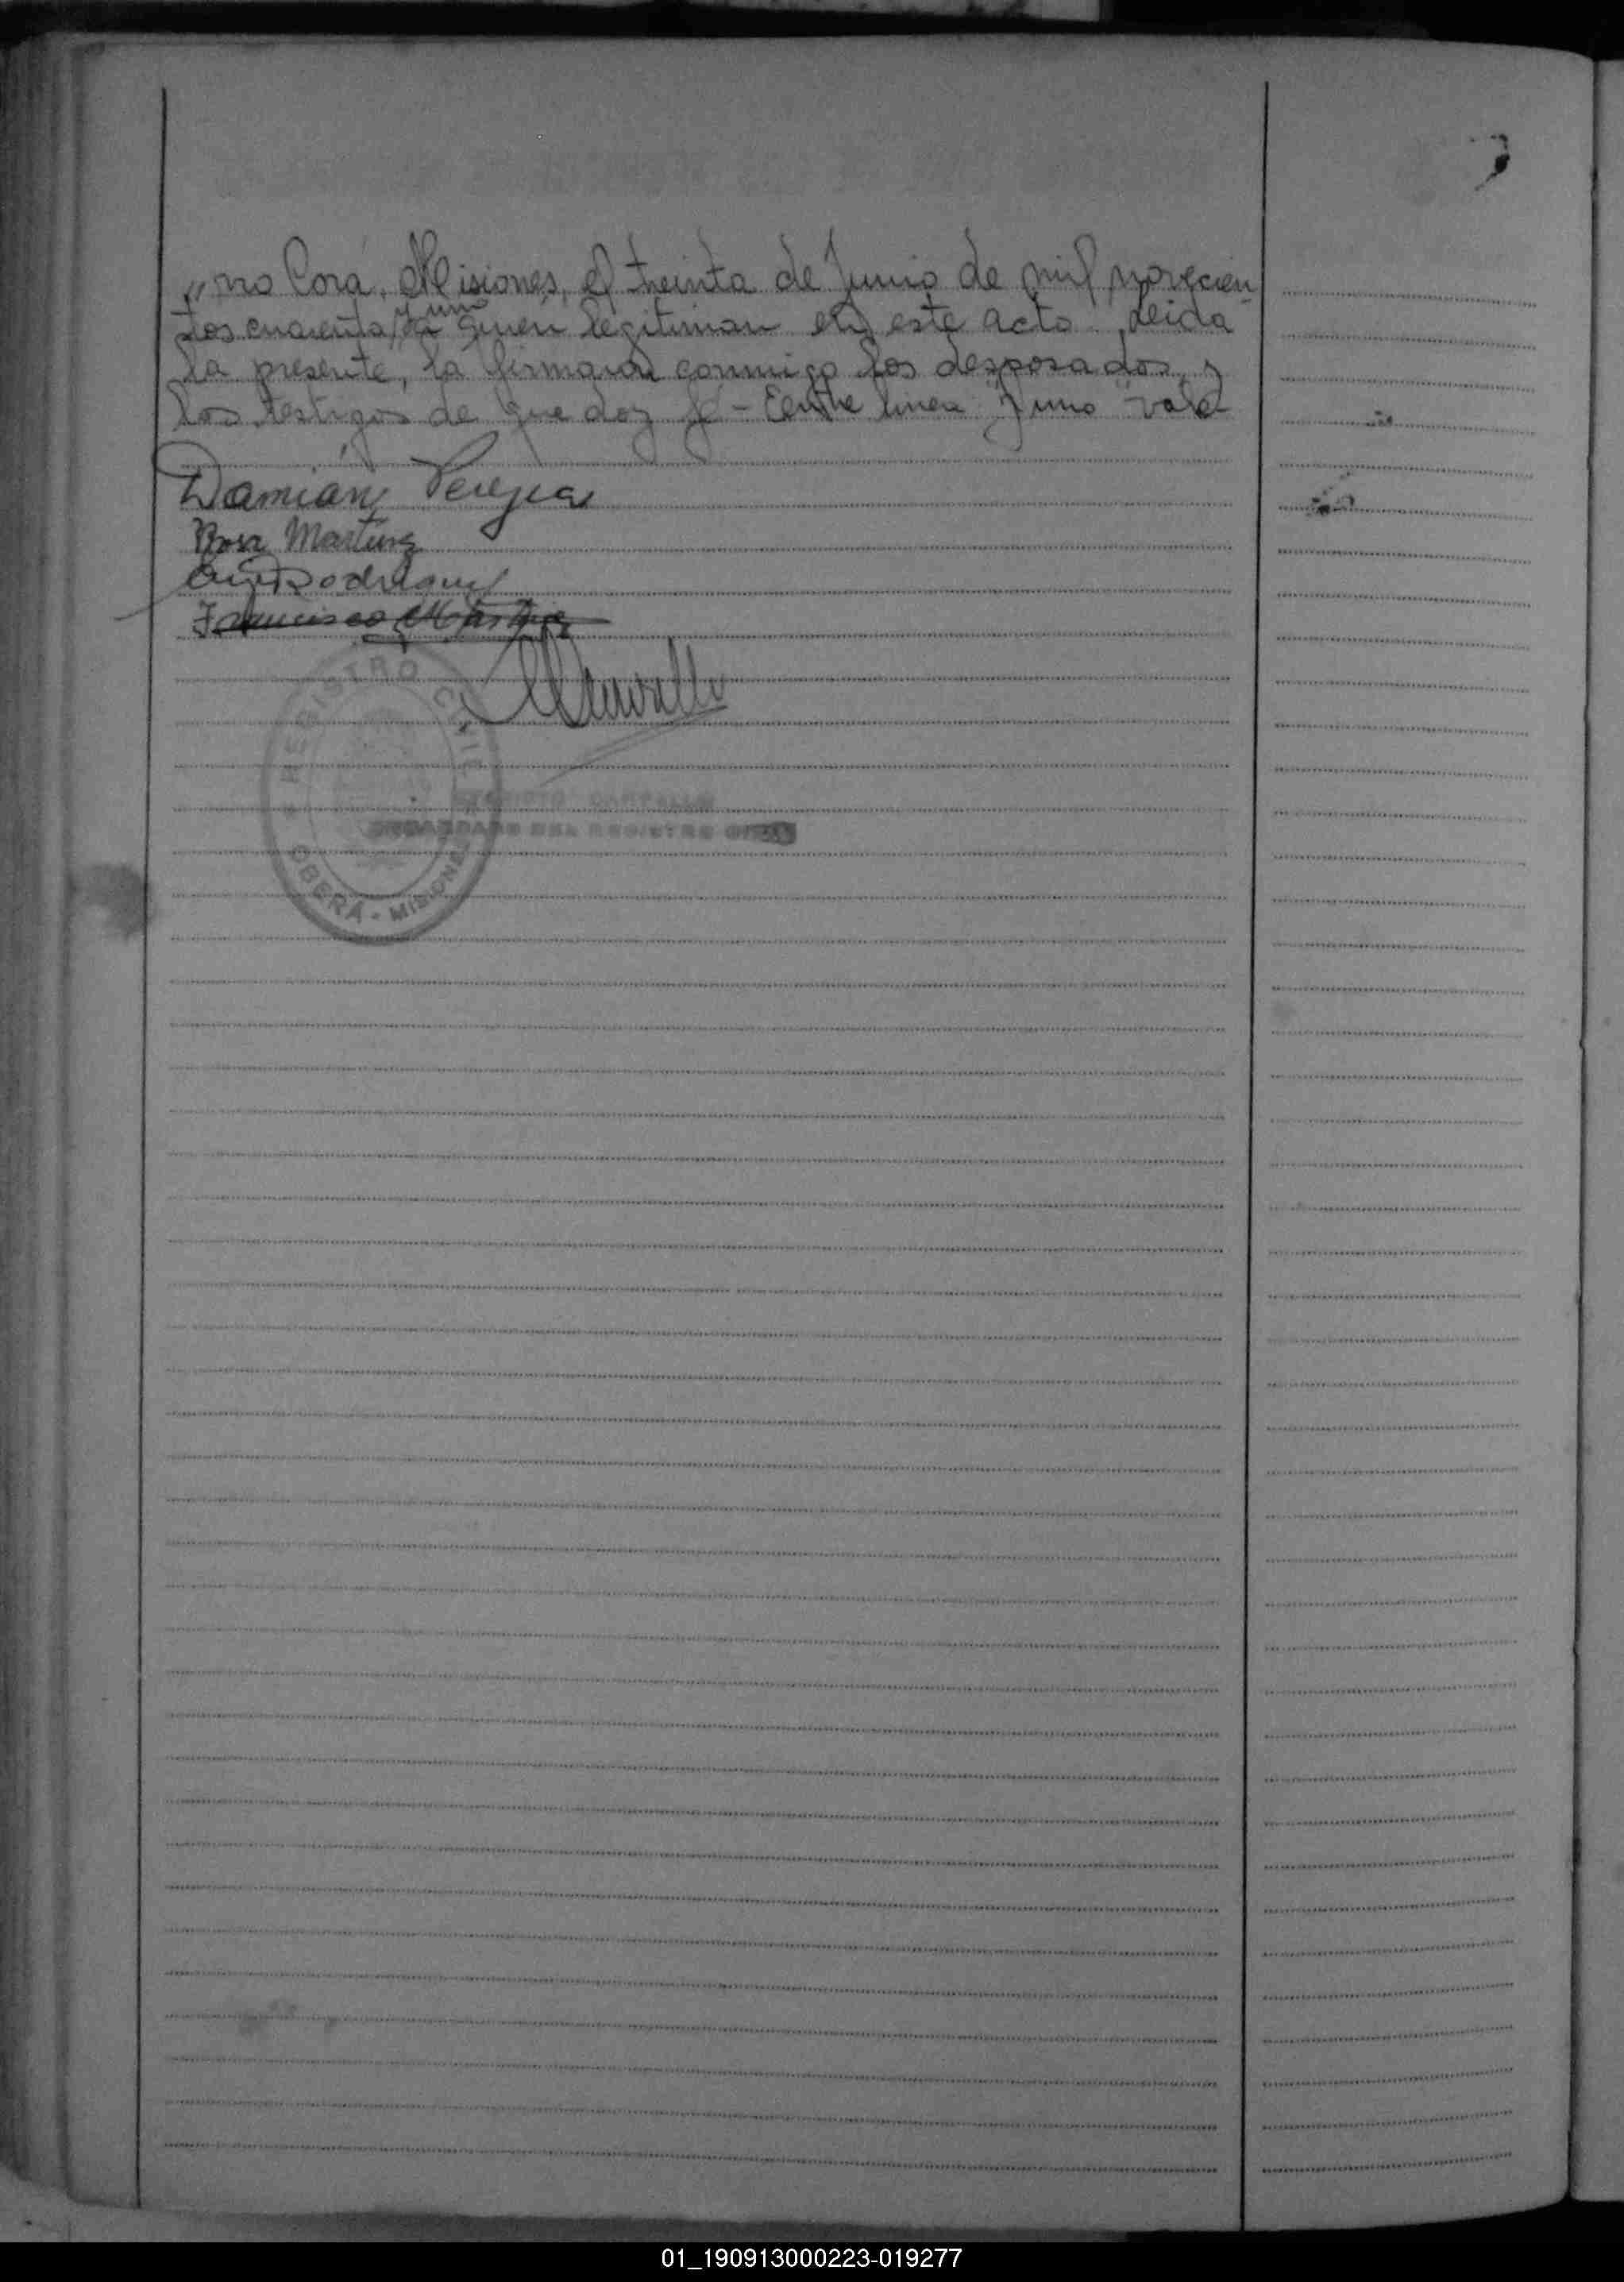 rro Corá, Misiones, el treinta de Junio de mil novecien
y uno
tos cuarenta, a quien legitiman en este acto. Leida
la presente, la firmaron conmigo los desposados y
los testigos de que doy fé - Entre linea "y uno" vale
Damián Pereyra
Rosa Martinez
Rodriguez
Francisco
REGISTRO CIVIL
OBERÁ - MISIONES
ENCARGADO DEL REGISTRO CIVIL
01_190913000223-019277